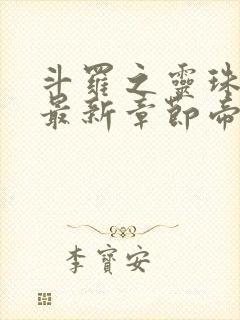 斗羅之靈珠
最新章節帝
李寶安